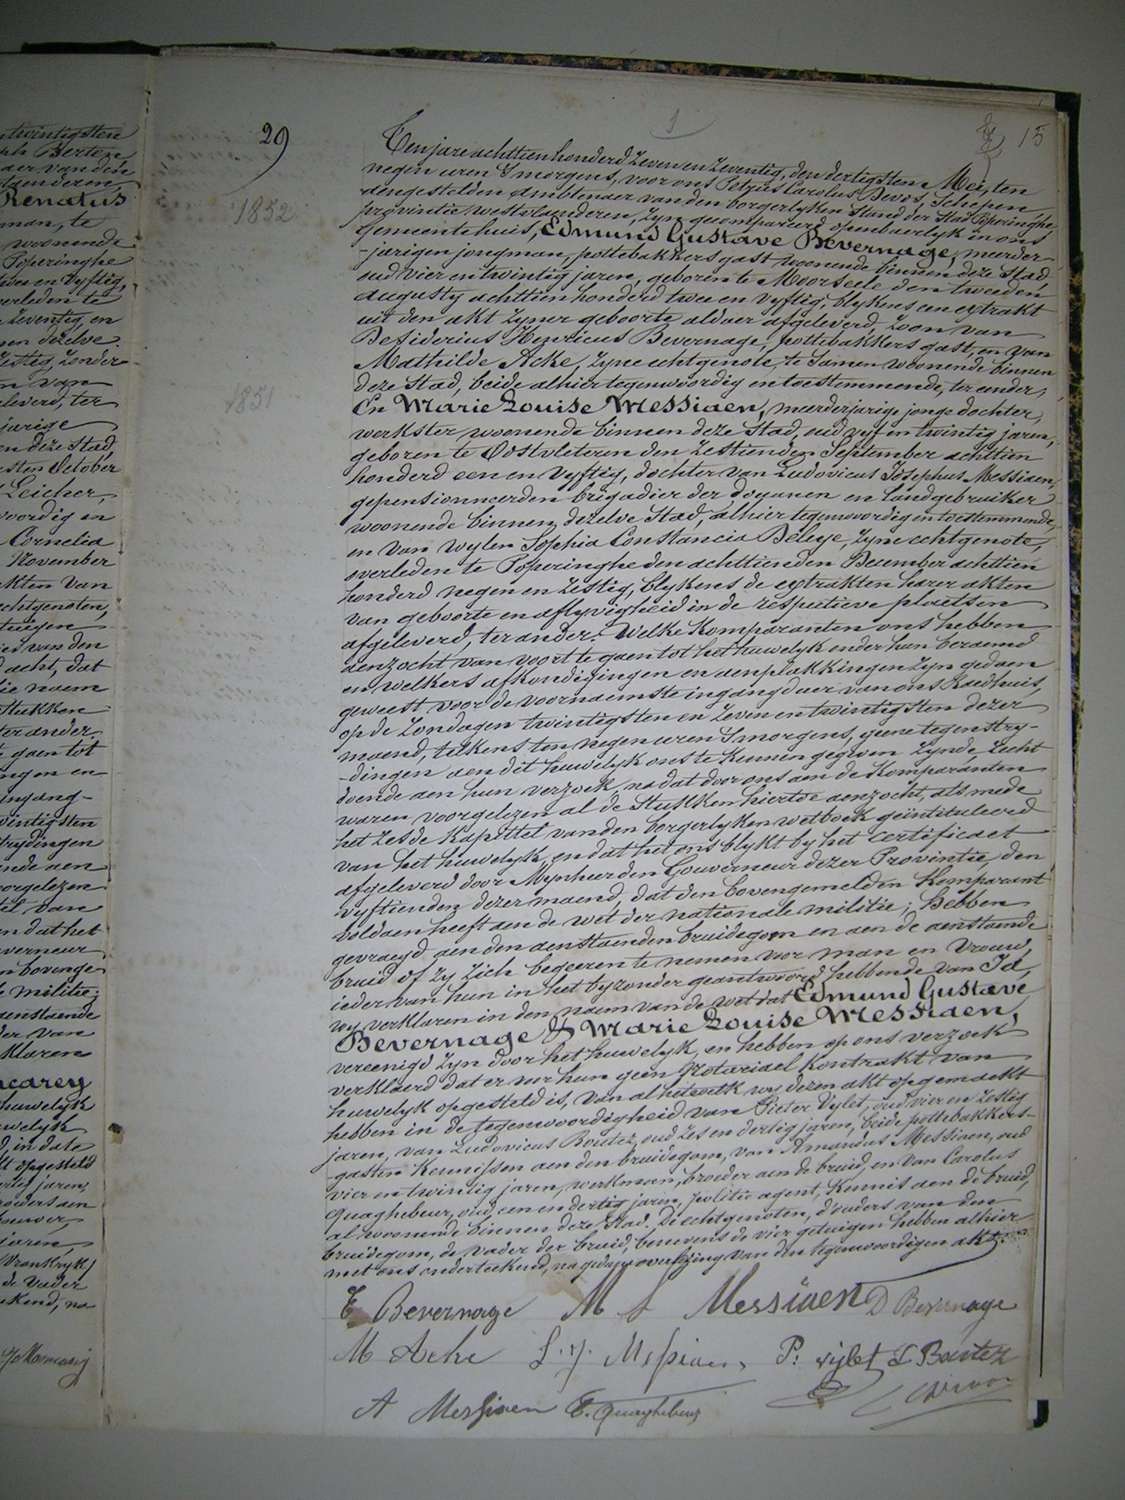 twintigsten
Renatus
man, te
woonende
Poperinghe
en vyftig,
overleden te
Zeventig, en
en dezelve
Zestig, zonder
van
leverd, ter
jarige
en deze stad,
esten October
Leicher,
woordig en
Cornelia
November
akten van
echtgenoten,
van den
acht, dat
naem
stukken
ter ander,
gaen tot
ingen en
ingang-
twintigsten
voorgelezen
van
en dat het
verneur
bovenge
militie;
aenstaende
van
klaren
huwelyk
in date
opgesteld
jaren,
Vrankryk)
de vader
ekend, na
29
1852
1851
1
15
Ten jare achttien honderd zeven en zeventig, den dertigsten Mei, ten
negen uren 's morgens, voor ons Petrus Carolus Devos, Schepen
aengestelden ambtenaer van den borgerlyken stand der stad Poperinghe,
provintie westvlaenderen, zyn gecompareerd openbaerlyk in ons
gemeentehuis, Edmund Gustave Bevernage, meerder-
-jarigen jongman, pottebakkers gast woonende binnen deze stad
oud vier en twintig jaren, geboren te Moorseele den tweeden
augusty achttien honderd twee en vyftig, blykens een extrakt
uit den akt zyner geboorte aldaer afgeleverd, zoon van
Desiderius Henricus Bevernage, pottebakkers gast, en van
Mathilde Acke, zyne echtgenote, te samen woonende binnen
deze stad, beide alhier tegenwoordig en toestemmende, ter eender,
En Marie Louise Messiaen, meerderjarige jonge dochter,
werkster woonende binnen deze stad, oud vyf en twintig jaren,
geboren te Oostvleteren den zestienden September achttien
honderd een en vyftig, dochter van Ludovicus Josephus Messiaen,
gepensionneerden brigadier der douanen en landgebruiker
woonende binnen dezelve stad, alhier tegenwoordig en toestemmende,
en van wylen Sophia Constancia Beleye, zyne echtgenote,
overleden te Poperinghe den achttienden December achttien
honderd negen en zestig, blykens de extrakten harer akten
van geboorte en aflyvigheid in de respectieve plaetsen
afgeleverd, ter ander. Welke Komparanten ons hebben
aenzocht van voort te gaen tot het huwelyk onder hun beraemd
en welkers afkondigingen en aenplakkingen zyn gedaen
geweest voor de voornaemste ingangdeur van ons Raedhuis,
op de zondagen twintigsten en zeven en twintigsten dezer
maend, telkens ten negen uren 's morgens, geene tegenstry-
-dingen aen dit huwelyk ons te kennen gegeven zynde, recht
doende aen hun verzoek, na dat door ons aen de Komparanten
waren voorgelezen al de stukken hiertoe aenzocht, als mede
het zesde Kapittel van den borgerlyken wetboek geïntituleerd
van het huwelyk, en dat het ons blykt by het certificaet
afgeleverd door Mynheer den Gouverneur dezer Provintie, den
vyftienden dezer maend, dat den bovengemelden Komparant
voldaen heeft aen de wet der nationale militie; Hebben
gevraegd aen den aenstaenden bruidegom en aen de aenstaende
bruid of zy zich begeeren te nemen voor man en vrouw,
ieder van hun in het byzonder geantwoord hebbende van Ja,
wy verklaren in den naem van de wet dat Edmund Gustave
Bevernage & Marie Louise Messiaen,
vereenigd zyn door het huwelyk, en hebben op ons verzoek
verklaerd dat er voor hun geen Notariael Kontrakt van
huwelyk opgesteld is, van al hetwelk wy dezen akt opgemaekt
hebben in de tegenwoordigheid van Pieter Vylet, oud vier en zestig
jaren, van Ludovicus Boutez, oud zes en dertig jaren, beide pottebakkers-
gasten Kennissen aen den bruidegom, van Amandus Messiaen, oud
vier en twintig jaren, werkman, broeder aen de bruid, en van Carolus
Quaghebeur, oud een en dertig jaren, politie agent, Kennis aen de bruid,
al woonende binnen deze stad. De echtgenoten, d'ouders van den
bruidegom, de vader der bruid, benevens de vier getuigen hebben alhier
met ons onderteekend, na gedane overlezing van den tegenwoordigen akt.
E Bevernage M L Messiaen D Bevernage
M Acke L. J. Messiaen P: vijlet L Boutez
A Messiaen C. Quaghebeur Devos